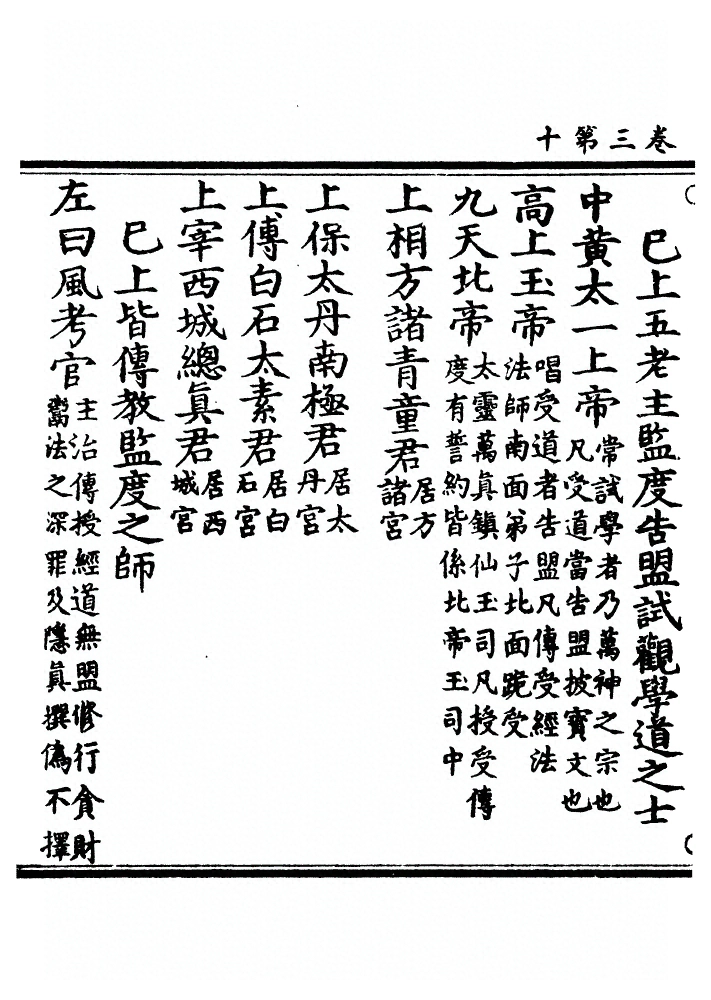 卷三第十
已上五老主監度告盟試觀學道之士
中黃太一上帝常試學者乃萬神之宗也凡受道當告盟披寶文也
高上玉帝唱受道者告盟凡傳受經法法師南面弟子北面跪受
九天北帝太靈萬真鎮仙玉司凡授受傳度有誓約皆係北帝玉司中
上相方諸青童君居方諸宮
上保太丹南極君居太丹宮
上傅白石太素君居白石宮
上宰西城總真君居西城宮
已上皆傳教監度之師
左曰風考官主治傳授經道無盟修行貪財鬻法之深罪及隱真撰偽不擇